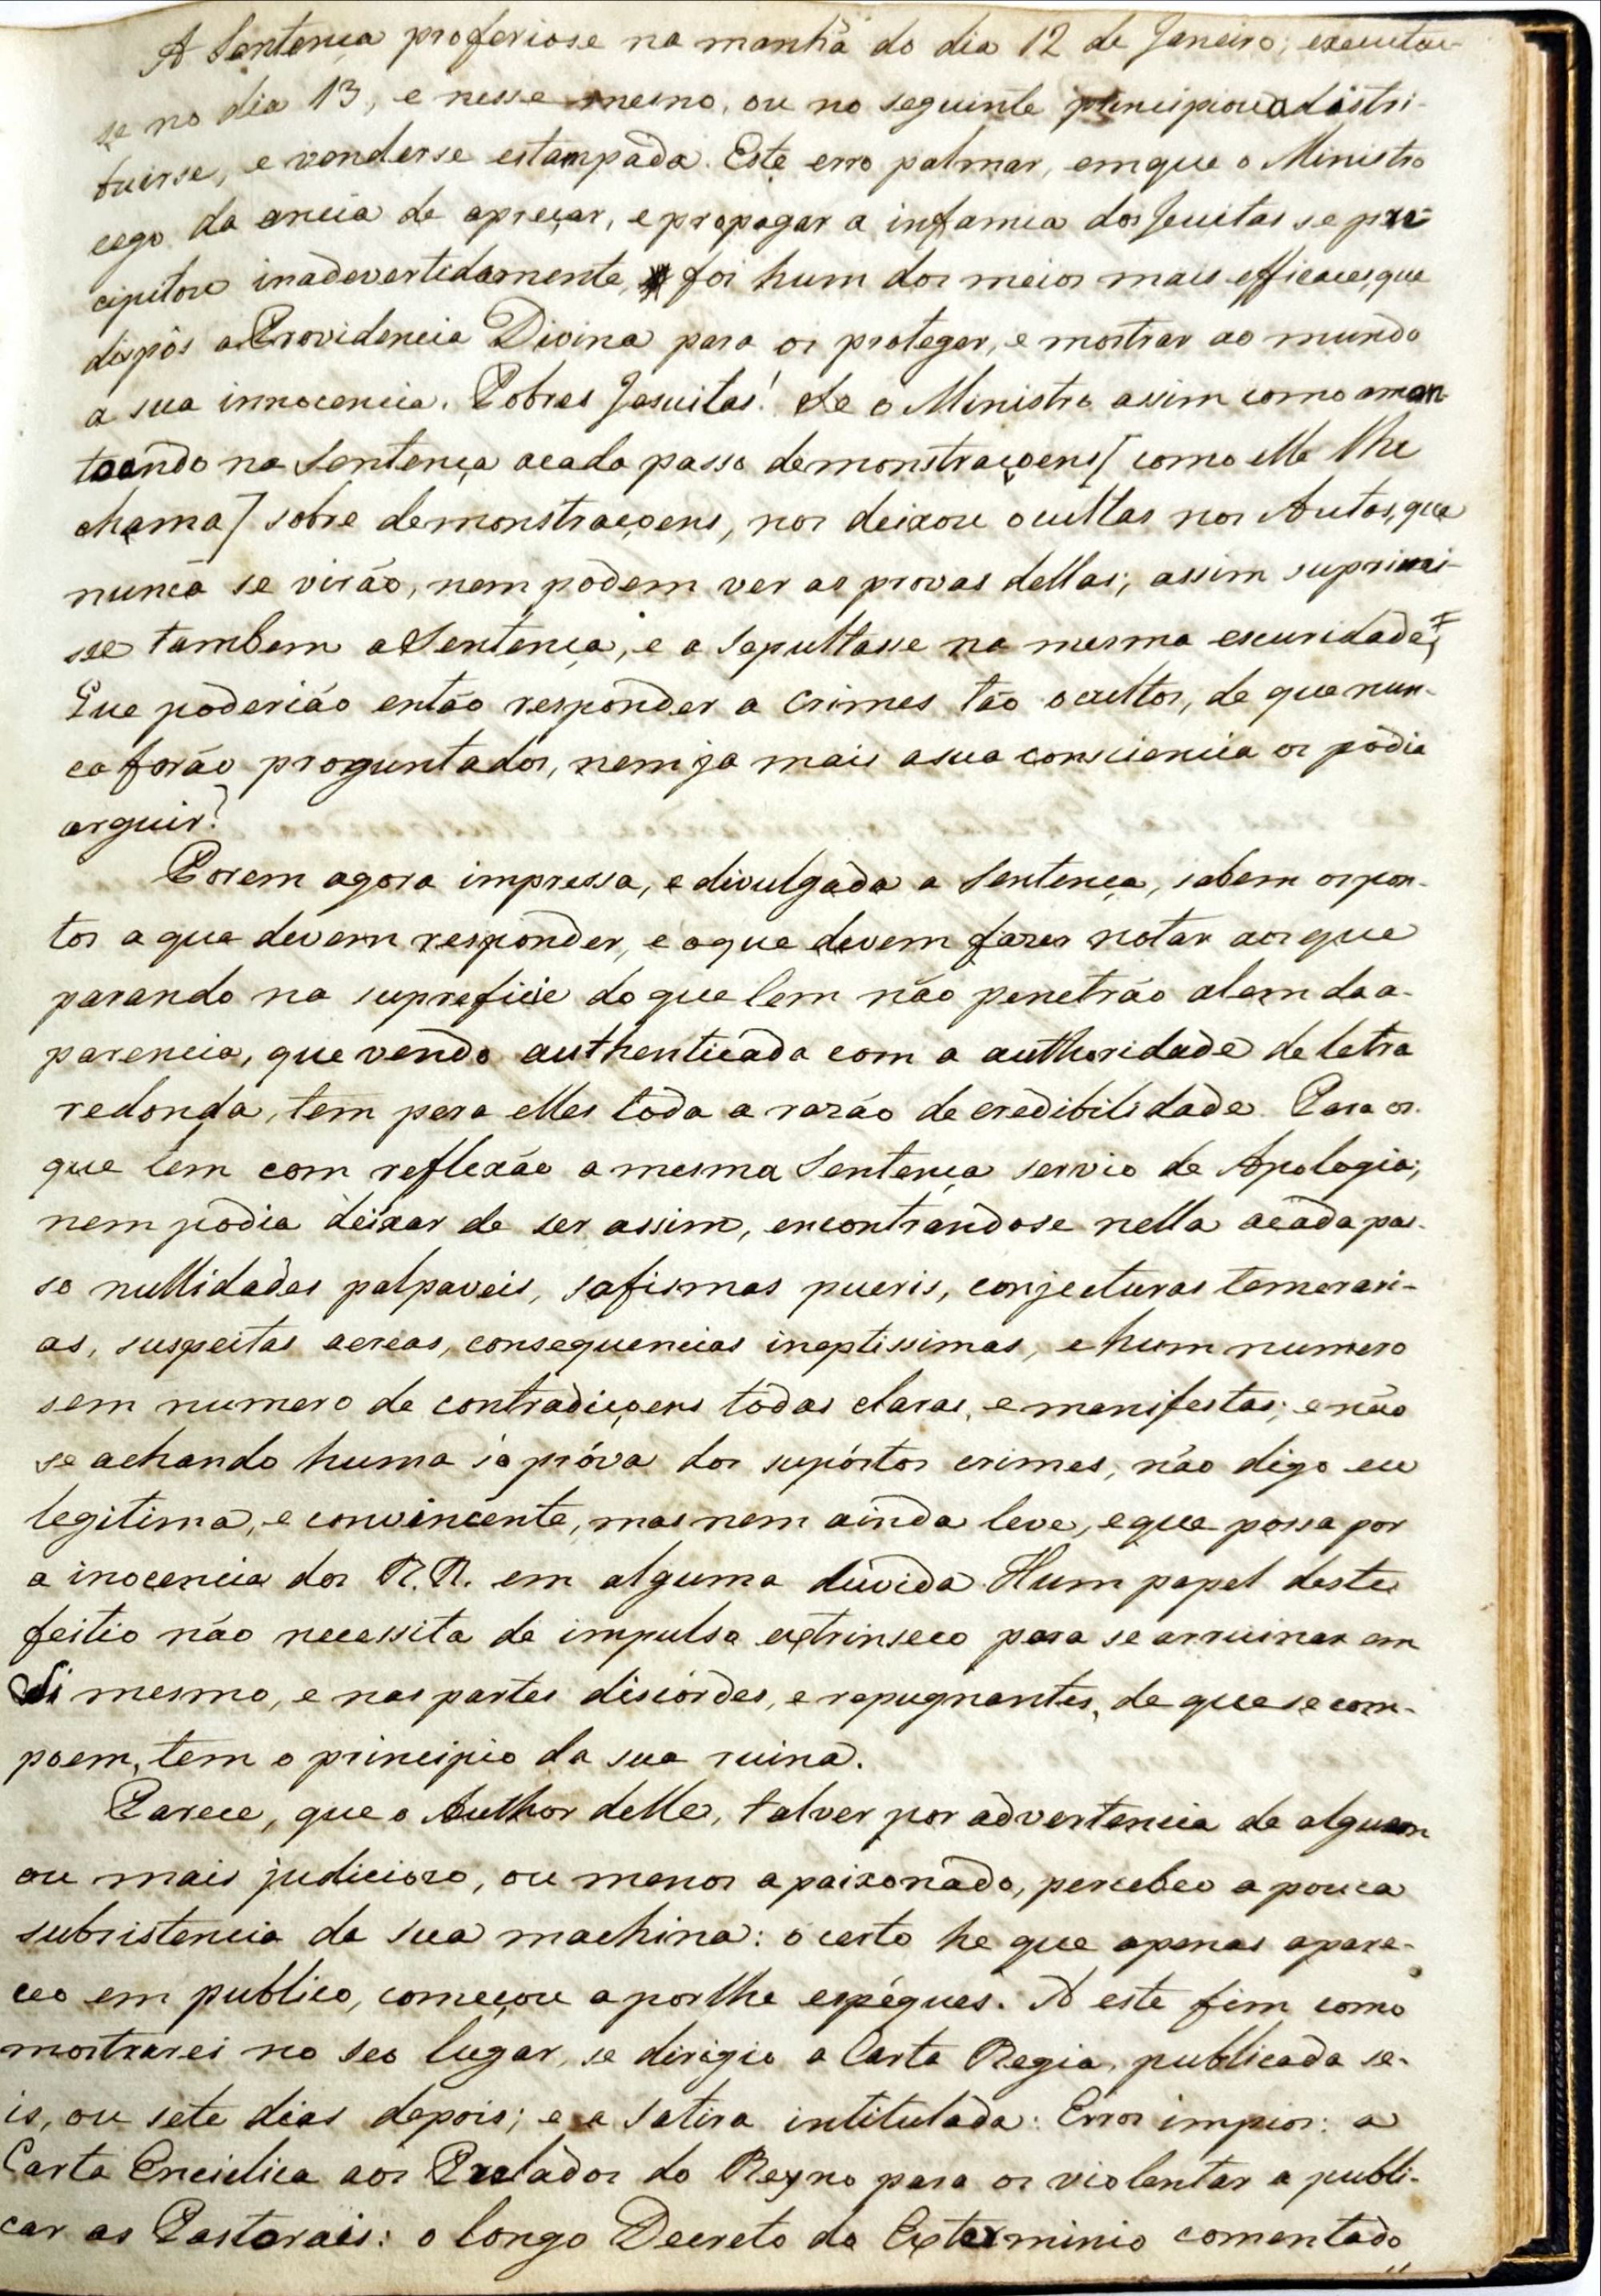 A Sentença proferiose na manhã do dia 12 de Janeiro; executou
se no dia 13, e nesse mesmo, ou no seguinte principiou a distri-
buirse, e venderse estampada. Este erro palmar, emque o Ministro
cego da ancia de apreçar, e propagar a infamia dos Jesuitas se pre-
cipitou inadevertidamente, foi hum dos meios mais efficaces, que
dispôs a Providencia Divina para os proteger, e mostrar ao mundo
a sua innocencia. Pobres Jesuitas! Se o Ministro assim como amon-
toando na Sentença acada passo demonstraçoens [ como elle lhe
chama ] sobre demonstraçoens, nos deixou ocultas nos Autos, que
nunca se virão, nem podem ver as provas dellas; assim suprimi-
sse tambem a Sentença, e a sepultasse na mesma escuridade;
Que poderião então responder a crimes tão ocultos, de que nun-
ca forão proguntados, nem ja mais a sua consciencia os podia
arguir?
Porem agora impressa, e divulgada a Sentença, sabem os pon-
tos a que devem responder, e o que devem fazer notar aos que
parando na supreficie do que lem não penetrão alem da a-
parencia, que vendo authenticada com a authoridade de letra
redonda, tem pera elles toda a razão de credibilidade. Para os
que lem com reflexão a mesma Sentença servio de Apologia;
nem podia deixar de ser assim, encontrandose nella acada pas-
so nullidades palpaveis, sofismas pueris, conjecturas temerari-
as, suspeitas aereas, consequencias ineptissimas, e hum numero
sem numero de contradiçoens todas claras, e manifestas; e não
se achando huma só próva dos supóstos crimes, não digo eu
legitima, e convincente, mas nem ainda leve, e que possa por
a inocencia dos R.R. em alguma duvida. Hum papel deste
feitio não necessita de impulso extrinseco para se arruinar em
Si mesmo, e nas partes discórdes, e repugnantes, de que se com-
poem, tem o principio da sua ruina.
Parece, que o Author delle, talvez por advertencia de alguem
ou mais judiciozo, ou menos apaixonado, percebeo a pouca
subsistencia da sua machina: o certo he que apenas apare-
ceo em publico, começou a porlhe espéques. A este fim como
mostrarei no seo lugar, se dirigio a Carta Regia, publicada se-
is, ou sete dias depois; e a Satira intitulada: Erros impios: a
Carta Enciclica aos Prelados do Reyno para os violentar a publi-
car as Pastorais: o longo Decreto do Exterminio comentado